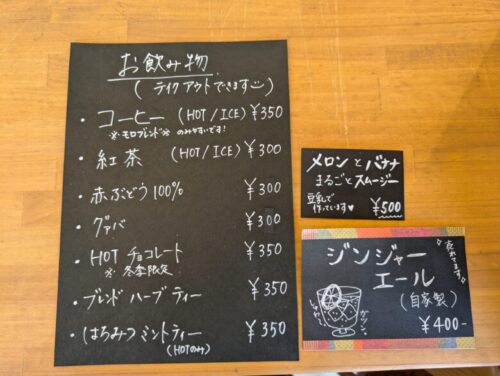 お飲み物
(テイクアウトできます)
・コーヒー (HOT/ICE) ¥350
※モロブレンド※ のみやすいです!
・紅茶 (HOT/ICE) ¥300
・赤ぶどう100% ¥300
・グァバ ¥300
・HOT チョコレート ¥350
※冬季限定
・ブレンド ハーブティー ¥350
・はちみつ ミントティー ¥350
(HOTのみ)
メロンとバナナ
まるごとスムージー
豆乳で
作っています♥
¥500
売れてます
ジンジャー
エール
(自家製)
¥400-